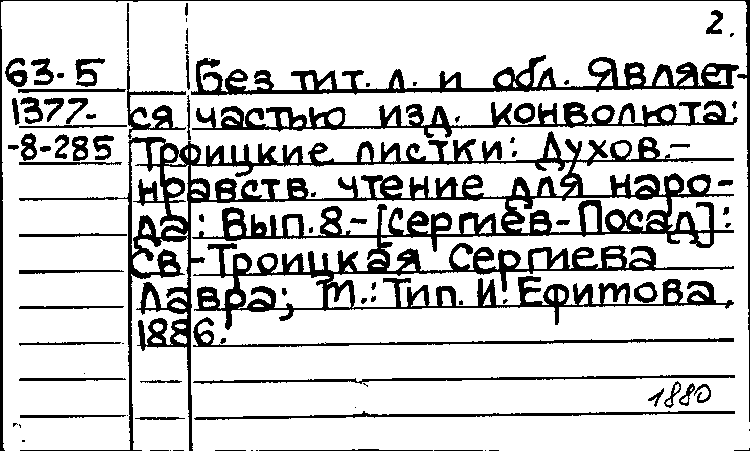 2.
63-5 Без тит. л. и обл. Являет-
1377- ся частью изд. конволюта:
-8-285 Троицкие листки: Духов.-
нравств. чтение для наро-
да: Вып. 8.-[Сергиев-Посад]:
Св-Троицкая Сергиева
Лавра; М.: Тип. И. Ефимова,
1886.
1880